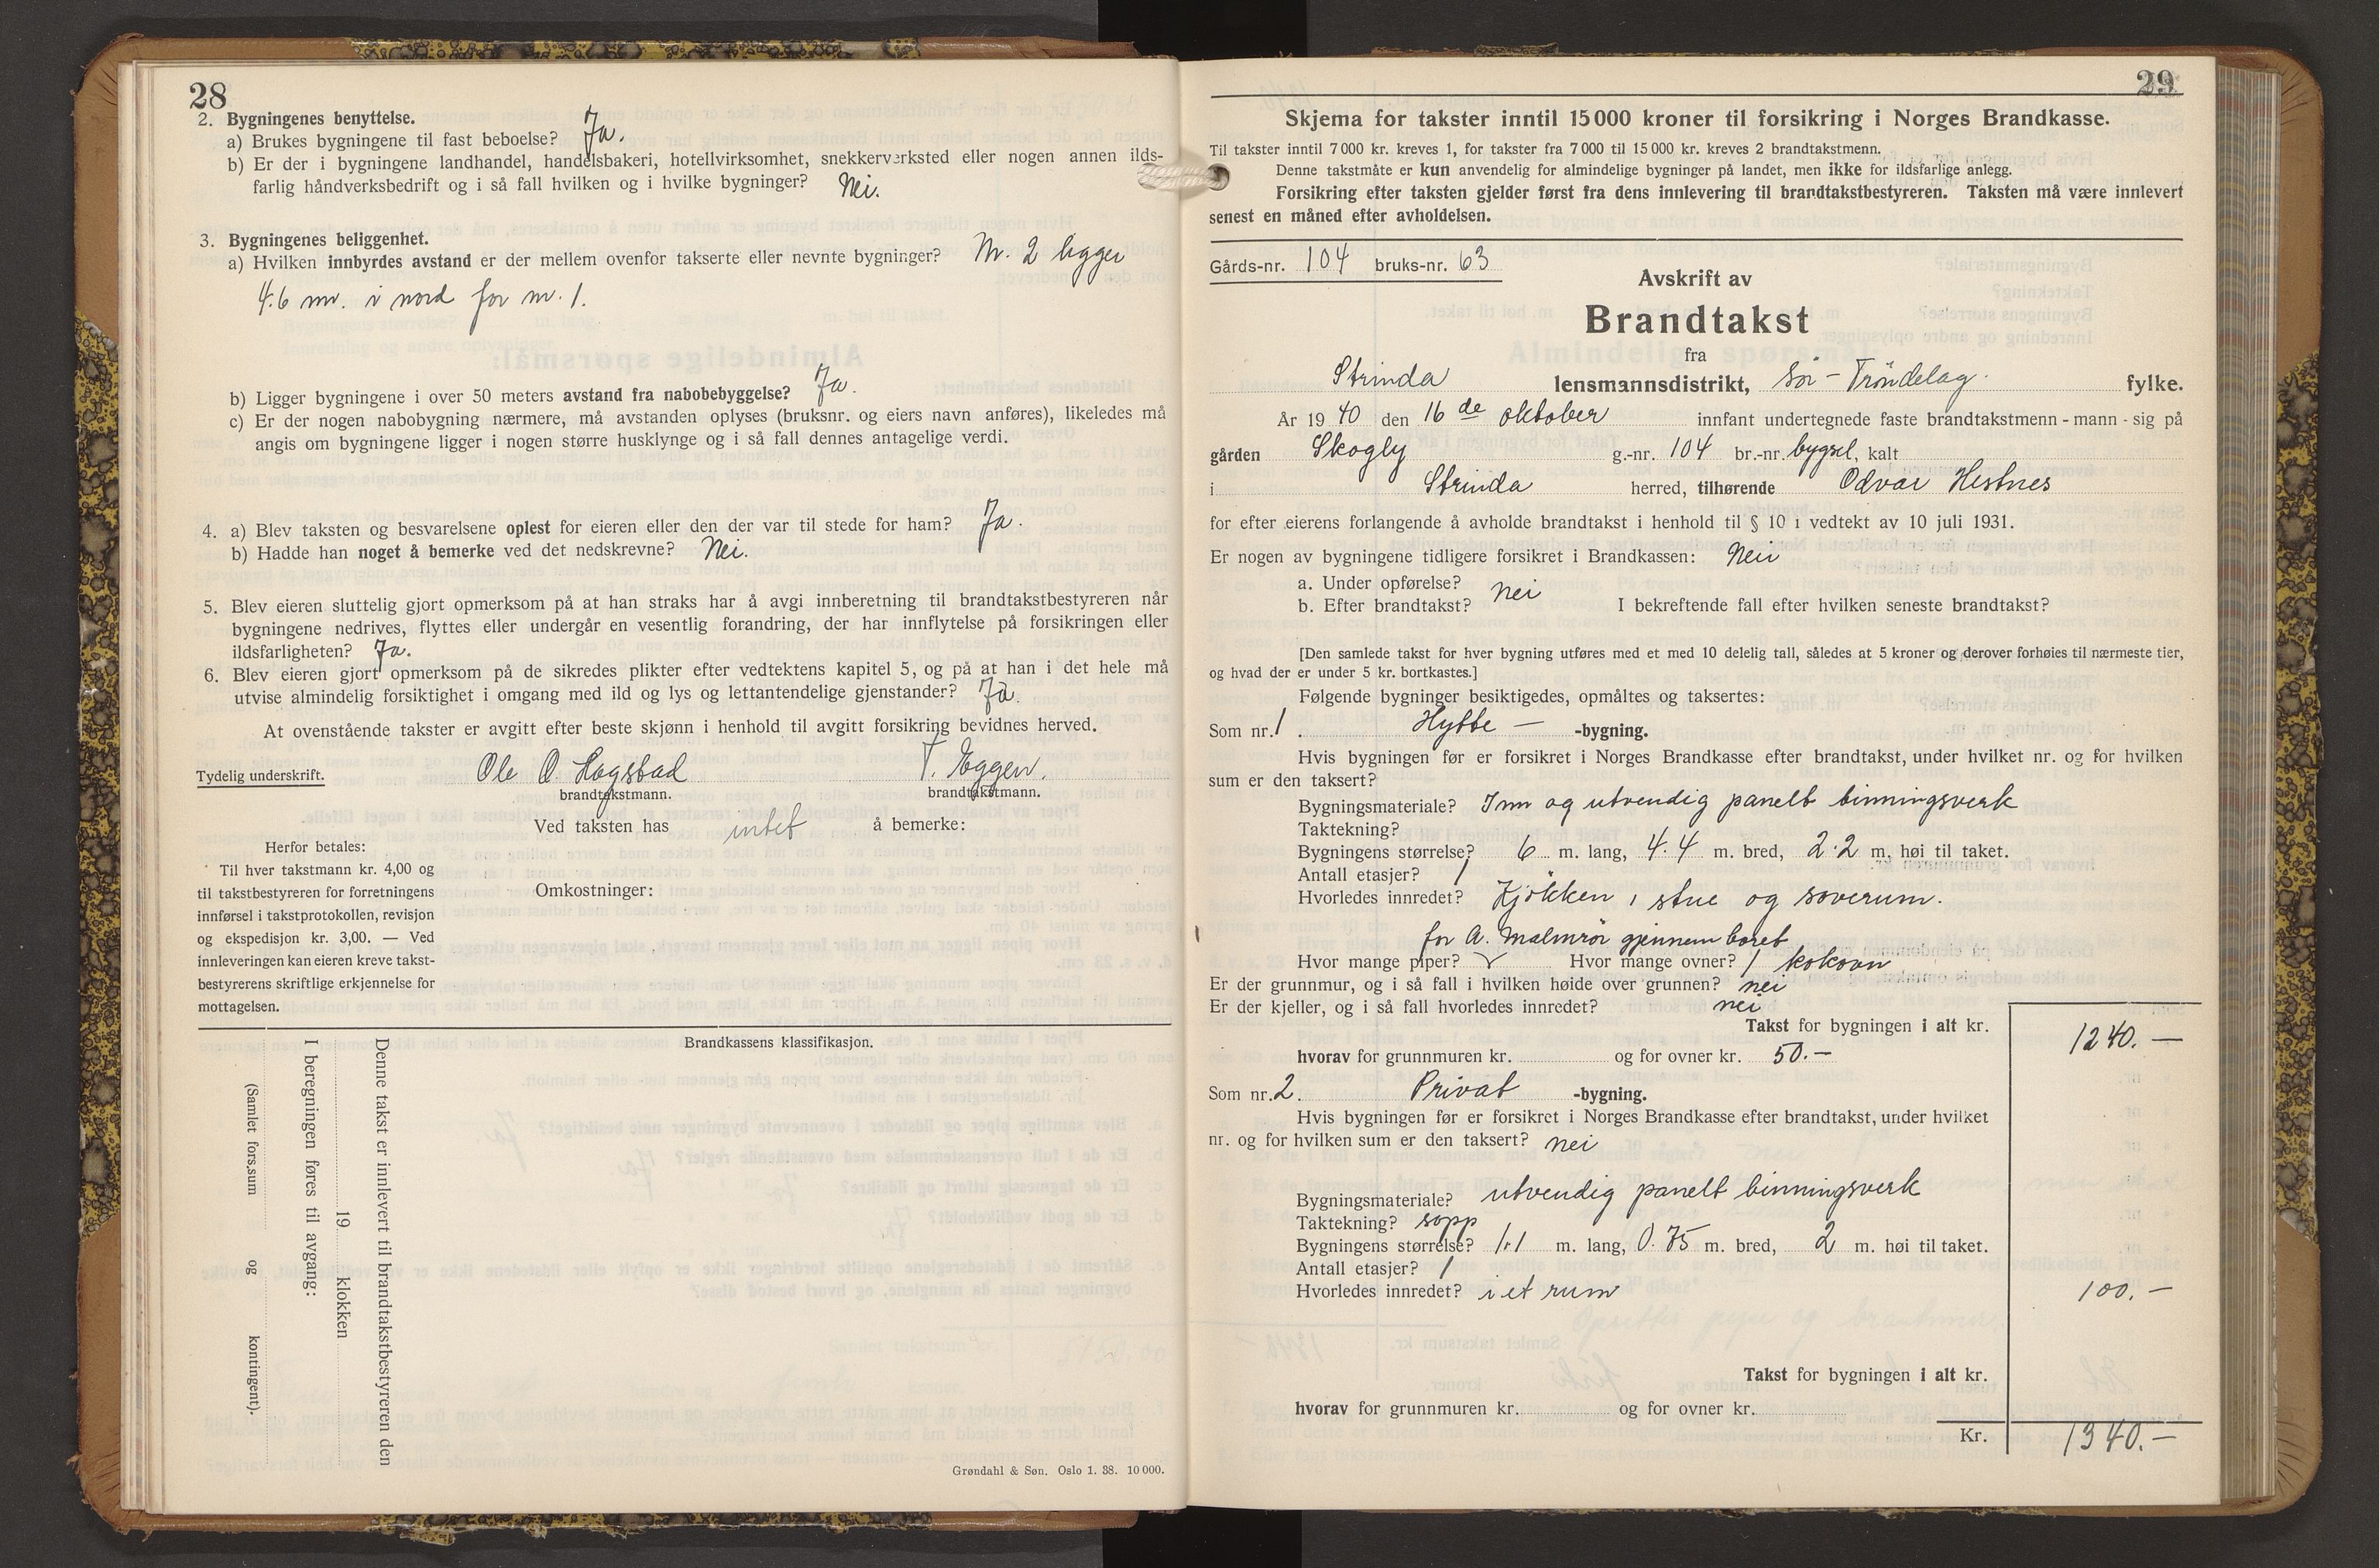 28
2. Bygningenes benyttelse.
a) Brukes bygningene til fast beboelse? Ja.
b) Er der i bygningene landhandel, handelsbakeri, hotellvirksomhet, snekkerverksted eller nogen annen ilds-
farlig håndverksbedrift og i så fall hvilken og i hvilke bygninger? Nei.
3. Bygningenes beliggenhet.
a) Hvilken innbyrdes avstand er der mellem ovenfor takserte eller nevnte bygninger? Nr. 2 ligger
4.6 m. i nord for nr. 1.
b) Ligger bygningene i over 50 meters avstand fra nabobebyggelse? Ja.
c) Er der nogen nabobygning nærmere, må avstanden oplyses (bruksnr. og eiers navn anføres), likeledes må
angis om bygningene ligger i nogen større husklynge og i så fall dennes antagelige verdi.
4. a) Blev taksten og besvarelsene oplest for eieren eller den der var til stede for ham? Ja.
b) Hadde han noget å bemerke ved det nedskrevne? Nei.
5. Blev eieren sluttelig gjort opmerksom på at han straks har å avgi innberetning til brandtakstbestyreren når
bygningene nedrives, flyttes eller undergår en vesentlig forandring, der har innflytelse på forsikringen eller
ildsfarligheten? Ja.
6. Blev eieren gjort opmerksom på de sikredes plikter efter vedtektens kapitel 5, og på at han i det hele må
utvise almindelig forsiktighet i omgang med ild og lys og lettantendelige gjenstander? Ja.
At ovenstående takster er avgitt efter beste skjønn i henhold til avgitt forsikring bevidnes herved.
Tydelig underskrift. Ole O Hagstad T. Eggen.
brandtakstmann. brandtakstmann.
Ved taksten has intet å bemerke:
Herfor betales:
Til hver takstmann kr. 4,00 og
til takstbestyreren for forretningens
innførsel i takstprotokollen, revisjon
og ekspedisjon kr. 3,00. — Ved
innleveringen kan eieren kreve takst-
bestyrerens skriftlige erkjennelse for
mottagelsen.
Omkostninger:
Brandkassens klassifikasjon.
Denne takst er innlevert til brandtakstbestyreren den
19 klokken
I beregningen føres til avgang:
(Samlet fors.sum og kontingent).
Grøndahl & Søn. Oslo 1. 38. 10 000.
29
Skjema for takster inntil 15 000 kroner til forsikring i Norges Brandkasse.
Til takster inntil 7 000 kr. kreves 1, for takster fra 7 000 til 15 000 kr. kreves 2 brandtakstmenn.
Denne takstmåte er kun anvendelig for almindelige bygninger på landet, men ikke for ildsfarlige anlegg.
Forsikring efter taksten gjelder først fra dens innlevering til brandtakstbestyreren. Taksten må være innlevert
senest en måned efter avholdelsen.
Gårds-nr. 104 bruks-nr. 63
Avskrift av
Brandtakst
fra
Strinda lensmannsdistrikt, Sör-Tröndelag. fylke.
År 1940 den 16 de oktober innfant undertegnede faste brandtakstmenn - mann - sig på
gården Skogly g.-nr. 104 br.-nr. bygsel, kalt
i Strinda herred, tilhørende Odvar Hestnes
for efter eierens forlangende å avholde brandtakst i henhold til § 10 i vedtekt av 10 juli 1931.
Er nogen av bygningene tidligere forsikret i Brandkassen: Nei
a. Under opførelse? nei
b. Efter brandtakst? I bekreftende fall efter hvilken seneste brandtakst?
[Den samlede takst for hver bygning utføres med et med 10 delelig tall, således at 5 kroner og derover forhøies til nærmeste tier,
og hvad der er under 5 kr. bortkastes.]
Følgende bygninger besiktigedes, opmåltes og taksertes:
Som nr. 1. Hytte — -bygning.
Hvis bygningen før er forsikret i Norges Brandkasse efter brandtakst, under hvilket nr. og for hvilken
sum er den taksert?
Bygningsmateriale? Inn og utvendig panelt binningsverk
Taktekning?
Bygningens størrelse? 6 m. lang, 4.4 m. bred, 2.2 m. høi til taket.
Antall etasjer? 1
Hvorledes innredet? Kjökken, stue og soverum.
for A. Malmrör gjennem taket
Hvor mange piper? Hvor mange ovner? 1 kokovn
Er der grunnmur, og i så fall i hvilken høide over grunnen? nei
Er der kjeller, og i så fall hvorledes innredet? nei
Takst for bygningen i alt kr. 1240.—
hvorav for grunnmuren kr. og for ovner kr. 50.—
Som nr. 2. Privat -bygning.
Hvis bygningen før er forsikret i Norges Brandkasse efter brandtakst, under hvilket
nr. og for hvilken sum er den taksert? nei
Bygningsmateriale? utvendig panelt binningsverk
Taktekning? sopp
Bygningens størrelse? 1.1 m. lang, 0.75 m. bred, 2 m. høi til taket.
Antall etasjer? 1
Hvorledes innredet? i et rum 100.—
Takst for bygningen i alt kr.
hvorav for grunnmuren kr. og for ovner kr.
Kr. 1340.—